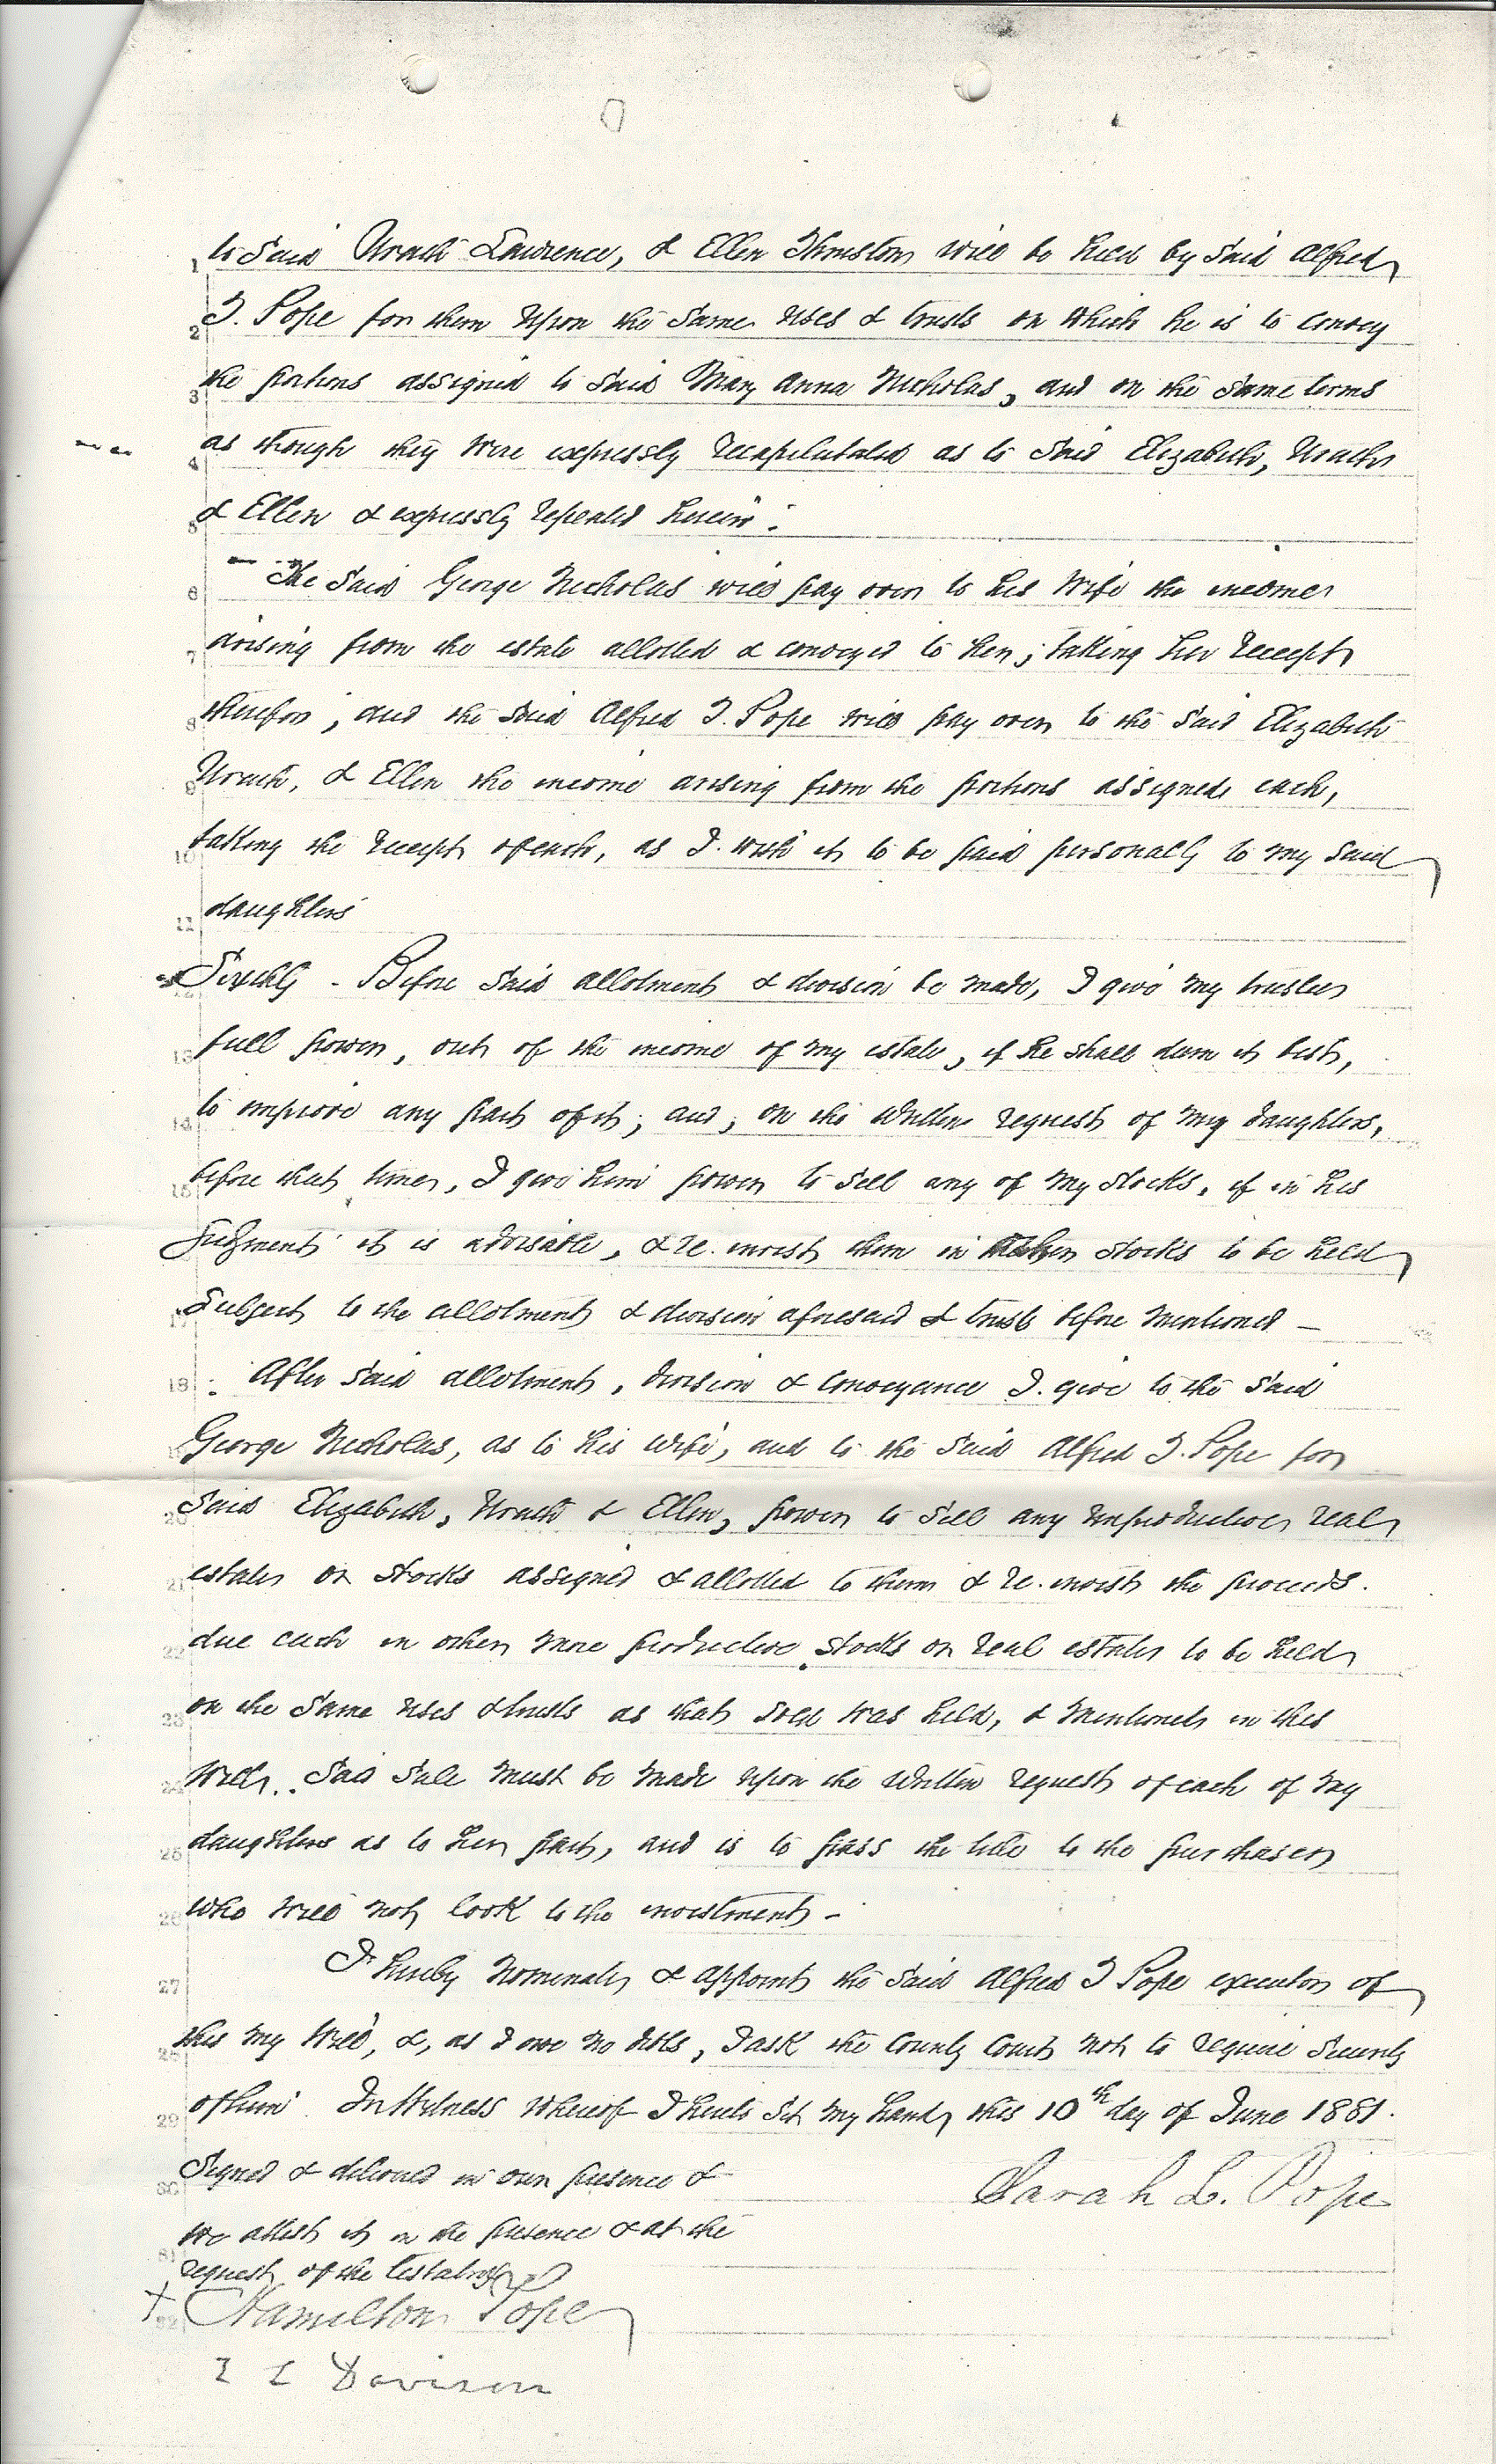 to Said Urath Lawrence, & Ellen Thruston will be held by Said Alfred
T. Pope for them upon the same uses & trusts on which he is to convey
the portions assigned to Said Mary Anna Nicholas, and on the same terms
as though they were expressly recapitulated as to Said Elizabeth, Urath
& Ellen & expressly repeated herein.
The Said George Nicholas will pay over to his wife the income
arising from the estate allotted & conveyed to her; taking her receipt
therefor, and the Said Alfred T. Pope will pay over to the Said Elizabeth
Urath, & Ellen the income arising from the portions assigned each,
taking the receipt of each, as I wish it to be paid personally to my Said
daughters
Sixthly - Before Said allotment & division be made, I give my trustee
full power, out of the income of my estate, if he shall deem it best,
to improve any part of it; and, on the written request of my daughters,
before that time, I give him power to sell any of my stocks, if in his
judgment it is advisable, & re-invest them in other stocks to be held
Subject to the allotment & division aforesaid & trusts before mentioned -
After Said allotment, division & conveyance I give to the Said
George Nicholas, as to his wife, and to the Said Alfred T. Pope for
Said Elizabeth, Urath & Ellen, power to sell any unproductive real
estate or stocks assigned & allotted to them & re-invest the proceeds
due each in other more productive stocks or real estate to be held
on the same uses & trusts as that sold was held, & mentioned in this
will. Said sale must be made upon the written request of each of my
daughters as to her part, and is to pass the title to the purchaser
who will not look to the investment -
I hereby nominate & appoint the Said Alfred T Pope executor of
this my will, &, as I owe no debts, I ask the County Court not to require security
of him. In Witness Whereof I hereto set my hand, this 10th day of June 1881.
Signed & delivered in our presence &
Sarah L. Pope
we attest it in the presence & at the
request of the testatrix
Hamilton Pope
Davison